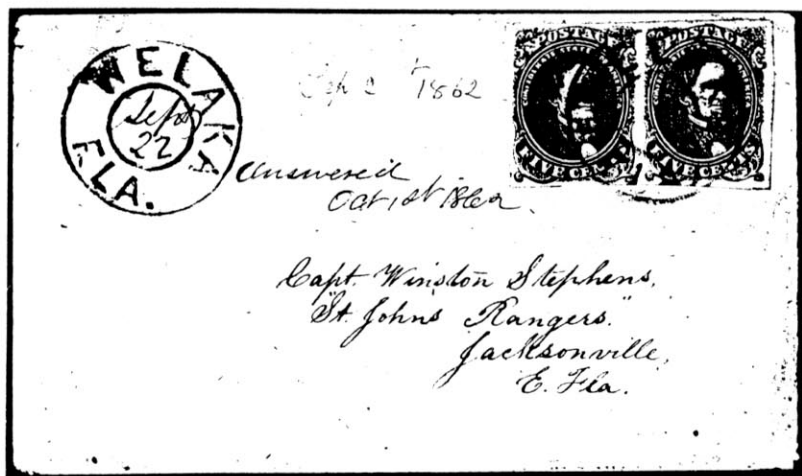 WELAKA
Sept
22
FLA.
1862
POSTAGE
FIVE CENTS
POSTAGE
FIVE CENTS
Answered
Oct 1st 1862.
Capt. Winston Stephens,
"St. Johns Rangers."
Jacksonville,
E. Fla.